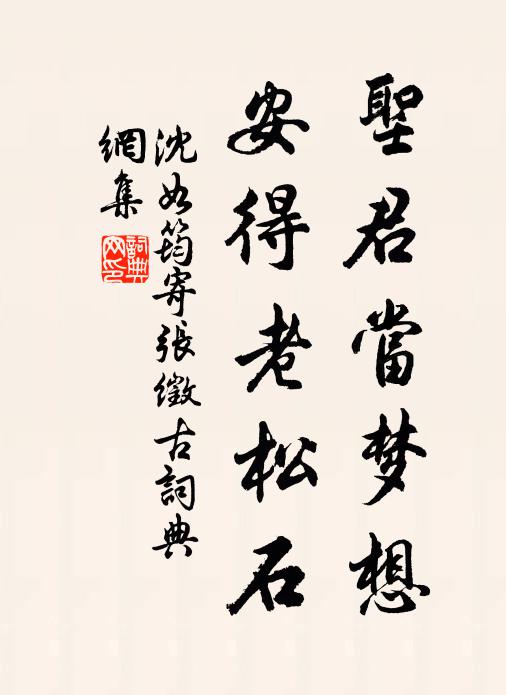 聖君當梦想
安得老松石
沈如筠寄張徵古詞典
網集
詞典
网印